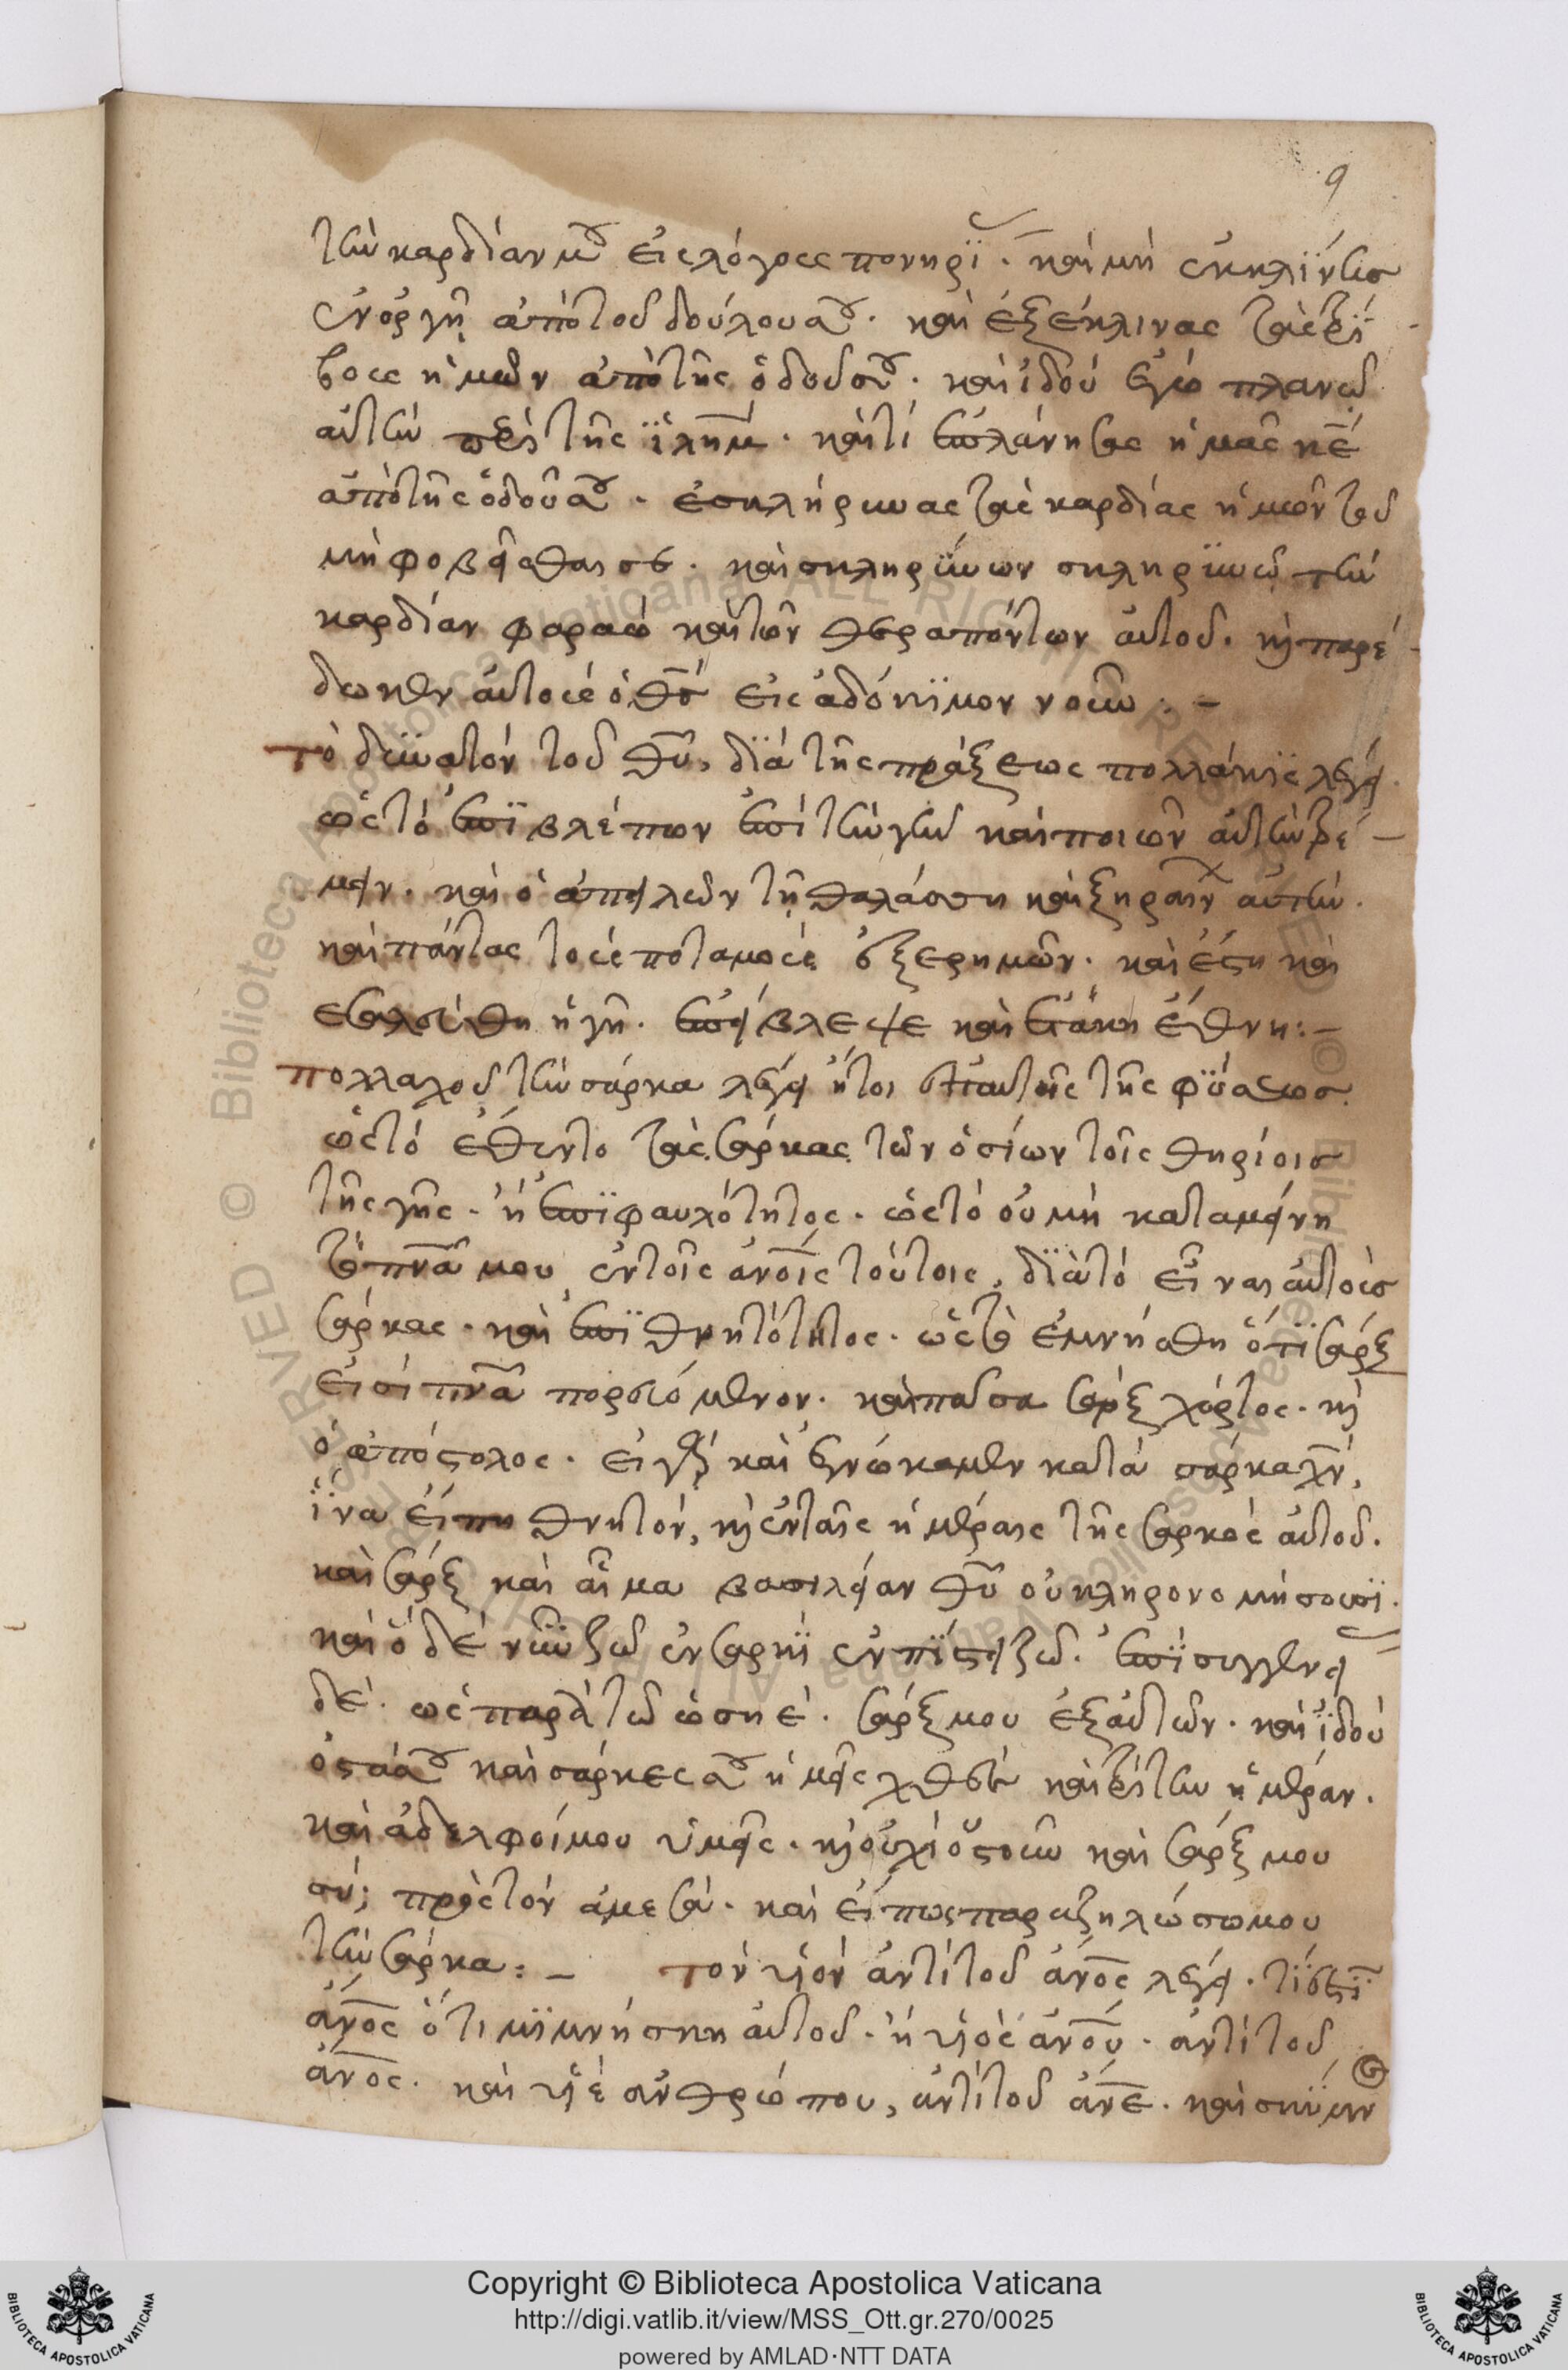 9
τὴν καρδίαν μου εἰς λόγους πονηρί. καὶ μὴ ἐκκλίνης
ἐν ὀργῇ ἀπὸ τοῦ δούλου σου. καὶ ἐξέκλινας τὰς τρί
βους ἡμῶν ἀπὸ τῆς ὁδοῦ σου. καὶ ἰδοὺ ἐγὼ πλανῶ
αὐτὴν τῆς ϊλημ. καὶ τί ἐπλάνησας ἡμᾶς κε
ἀπὸ τῆς ὁδοῦ σου. ἐσκλήρυνας τὰς καρδίας ἡμῶν τοῦ
μὴ φοβεῖσθαι σε. καὶ σκληρύνων σκληρυνῶ τὴν
καρδίαν φαραὼ καὶ τῶν θεραπόντων αὐτοῦ. καὶ παρέ
δωκεν αὐτοὺς ὁ θς εἰς ἀδόκϊμον νοῦν :-
τὸ δυνατὸν τοῦ θυ, διὰ τῆς πράξεως πολλάκϊς λέγει.
ὡς τὸ ἐπϊβλέπων ἐπὶ τὴν γῆν καὶ ποιῶν αὐτὴν τρέ
μειν. καὶ ὁ ἀπειλῶν τῇ θαλάσση καὶ ξηραίνων αὐτὴν.
καὶ πάντας τοὺς ποταμοὺς ἐξερημῶν. καὶ ἔστη καὶ
ἐσαλεύθη ἡ γῆ. ἐπέβλεψε καὶ ἐτάκη ἔθνη :-
πολλαχοῦ τὴν σάρκα λέγει ἤτοι ἐπ αὐτῆς τῆς φύσεως.
ὡς τὸ ἔθεντο τὰς σάρκας τῶν ὁσίων τοῖς θηρίοις
τῆς γῆς. ἢ ἐπϊ φαυλότητος. ὡς τὸ οὐ μὴ καταμείνη
τὸ πνα μου ἐν τοῖς ἀνοις τούτοις, διὰ τὸ εἶναι αὐτοὺς
σάρκας. καὶ ἐπϊ θνητότητος. ὡς τὸ ἐμνήσθη ὅτϊ σάρξ
εἰσὶ πνα πορευόμενον. καὶ πᾶσα σὰρξ χόρτος. καὶ
ὁ ἀπόστολος. εἰ γὰρ καὶ ἐγνώκαμεν κατὰ σάρκα χν,
ἵνα εἴπη θνητόν, καὶ ἐν ταῖς ἡμέραις τῆς σαρκὸς αὐτοῦ.
καὶ σὰρξ καὶ αἷμα βασιλείαν θυ οὐ κληρονομήσουσϊ.
καὶ ὃ δὲ νῦν ζῶ ἐν σαρκϊ ἐν πίστει ζῶ. ἐπϊ συγγενεῖ
δέ. ὡς παρὰ τῶ ὡσηέ. σάρξ μου ἐξ αὐτῶν. καὶ ἰδοὺ
ὀστᾶ σου καὶ σάρκες σου ἡμεῖς χθὲς καὶ τρίτην ἡμέραν.
καὶ ἀδελφοί μου ὑμεῖς. καὶ οὐχὶ ὀστοῦν καὶ σάρξ μου
σύ; πρὸς τὸν ἀμεσά. καὶ εἴπως παραζηλώσω μου
τὴν σάρκα :- τὸν υἱὸν ἀντὶ τοῦ ἀνος λέγει. τί ἐστϊν
ἀνος ὅτι μϊμνήσκη αὐτοῦ. ἢ υἱὸς ἀνου. ἀντὶ τοῦ
ἀνος. καὶ υἱὲ ἀνθρώπου, ἀντὶ τοῦ ἀνε. καὶ σκύμν
Copyright © Biblioteca Apostolica Vaticana
http://digi.vatlib.it/view/MSS_Ott.gr.270/0025
powered by AMLAD·NTT DATA